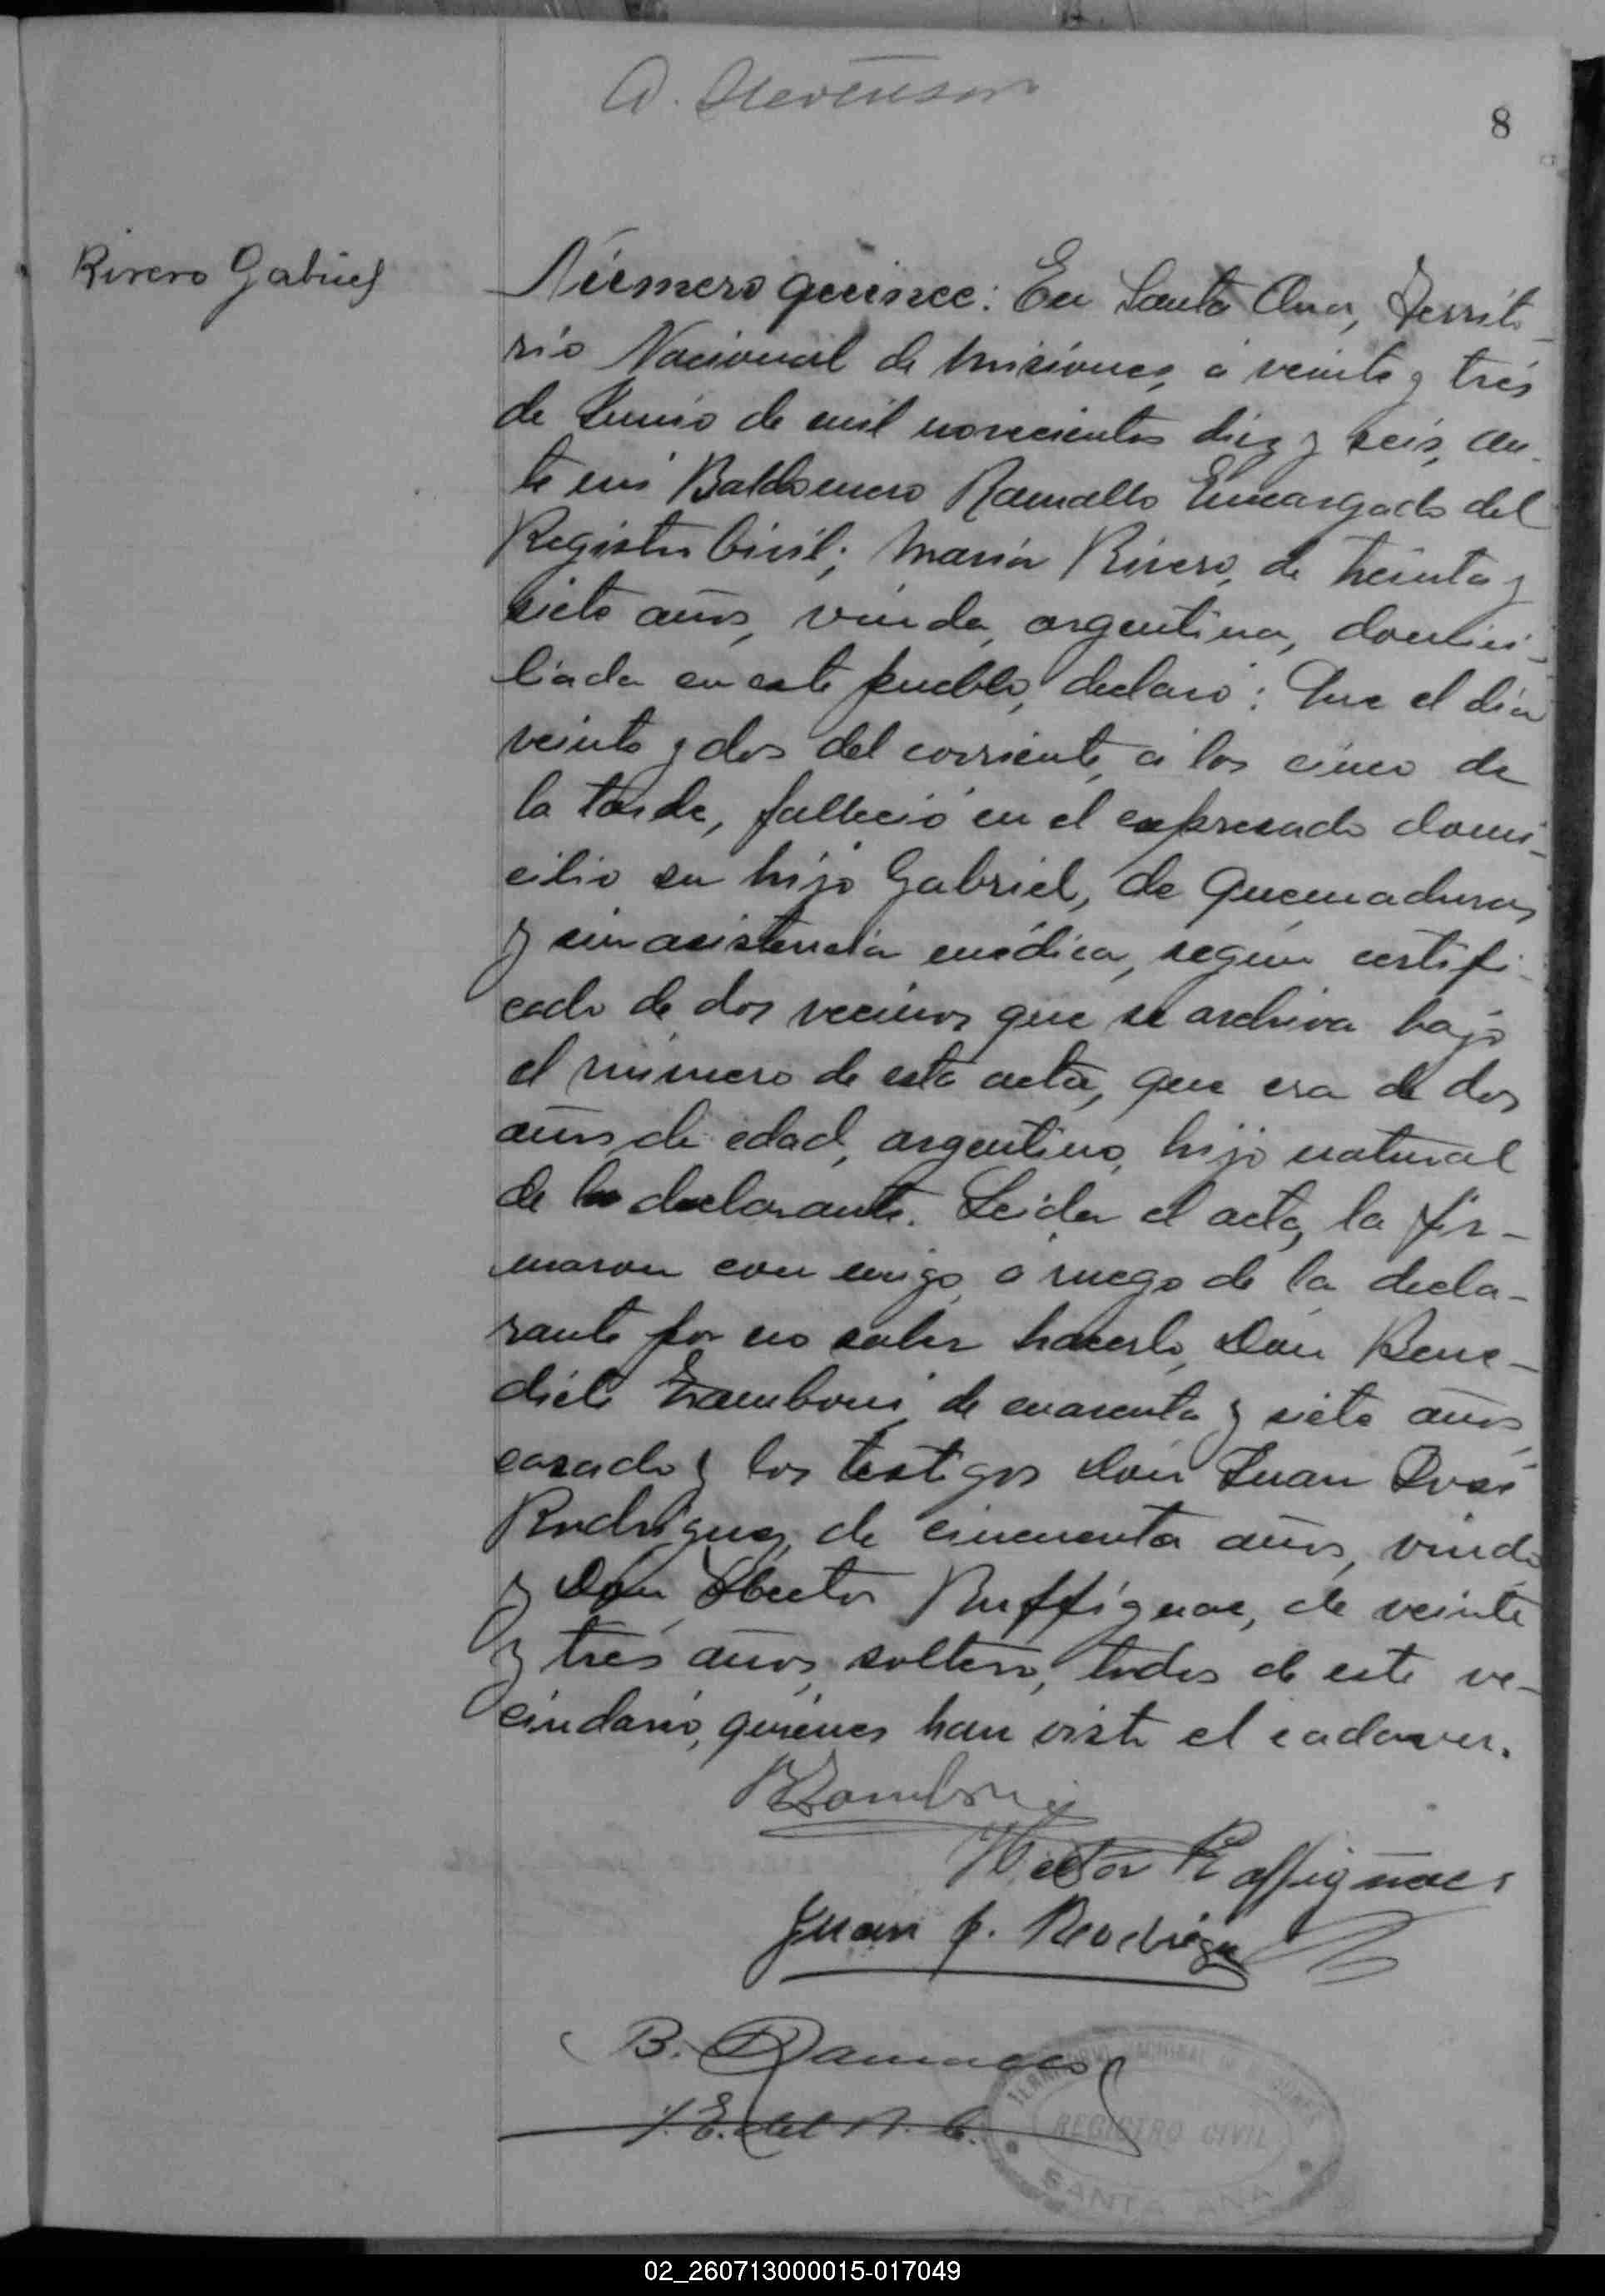 A. Stevenson
8
Rivero Gabriel
Número quince: En Santa Ana, Territo-
rio Nacional de Misiones, á veinte y tres
de Junio de mil novecientos diez y seis, an-
te mi Baldomero Ramallo Encargado del
Registro Civil; María Rivero, de treinta y
siete años, viuda, argentina, domici-
liada en este pueblo, declaró: Que el día
veinte y dos del corriente, á las cinco de
la tarde, falleció en el expresado domi-
cilio su hijo Gabriel, de quemaduras,
y sin asistencia médica, según certifi-
cado de dos vecinos que se archiva bajo
el número de esta acta, que era de dos
años de edad, argentino, hijo natural
de la declarante. Leida el acta, la fir-
maron con migo, á ruego de la decla-
rante por no saber hacerlo, Don Bene-
dicto Zamboni, de cuarenta y siete años,
casado y los testigos Don Juan José
Rodriguez, de cincuenta años, viudo
y Don Hector Ruffignac, de veinte
y tres años, soltero, todos de este ve-
cindario, quienes han visto el cadaver.
BZamboni
Hector Raffignac
Juan J. Rodrigue
B. Ramallo
E. del R. C.
TERRITORIO NACIONAL DE MISIONES
REGISTRO CIVIL
SANTA ANA
02_260713000015-017049